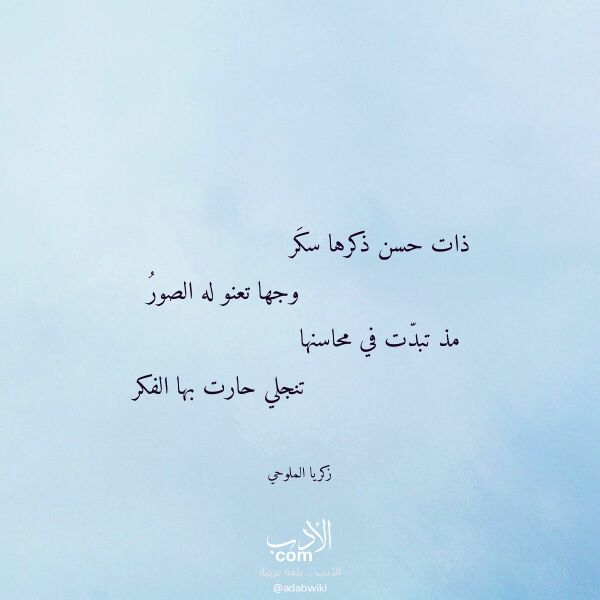 ذات حسن ذكرها سكَر
وجها تعنو له الصورُ
مذ تبدّت في محاسنها
تنجلي حارت بها الفكر
زكريا الملوحي
الأدب
com
الأدب .. بلغة عربية
@adabwiki